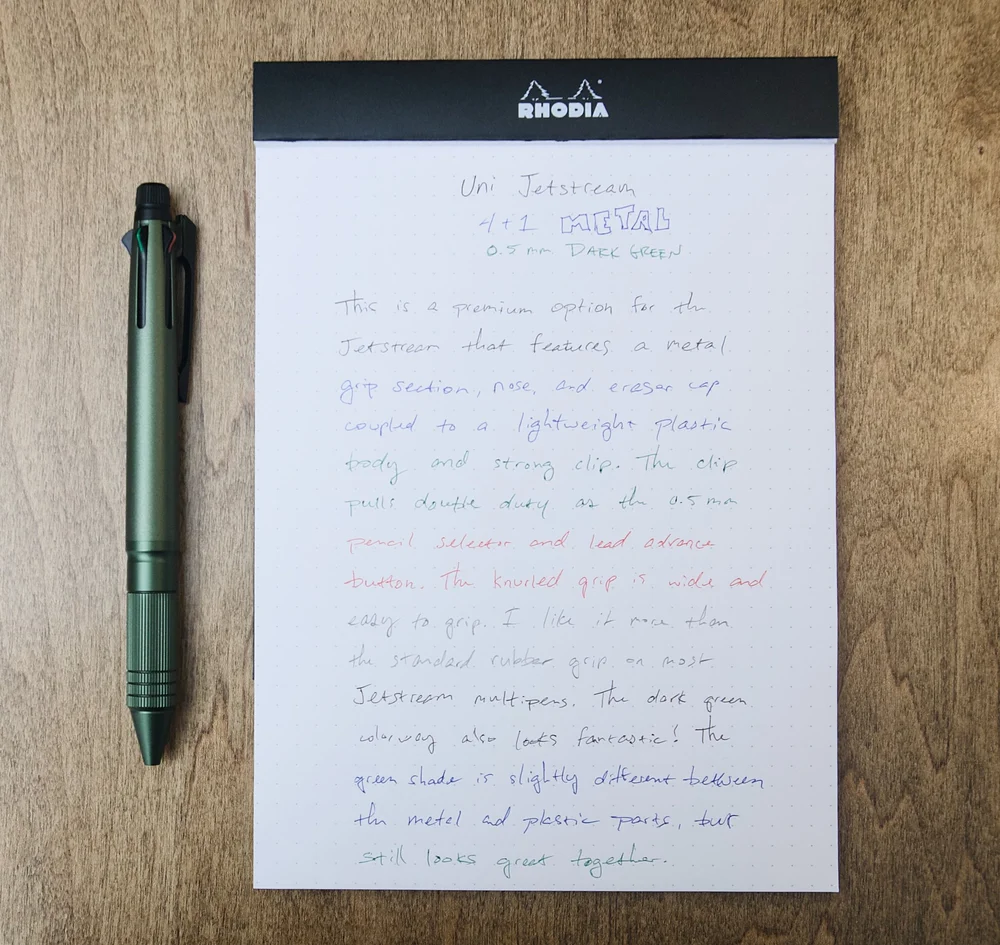 RHODIA
Uni Jetstream
4+1 METAL
0.5 mm DARK GREEN
This is a premium option for the
Jetstream that features a metal
grip section, nose, and eraser cap
coupled to a lightweight plastic
body and strong clip. The clip
pulls double duty as the 0.5 mm
pencil selector and lead advance
button. The knurled grip is wide and
easy to grip. I like it more than
the standard rubber grip on most
Jetstream multipens. The dark green
colorway also looks fantastic! The
green shade is slightly different between
the metal and plastic parts, but
still looks great together.